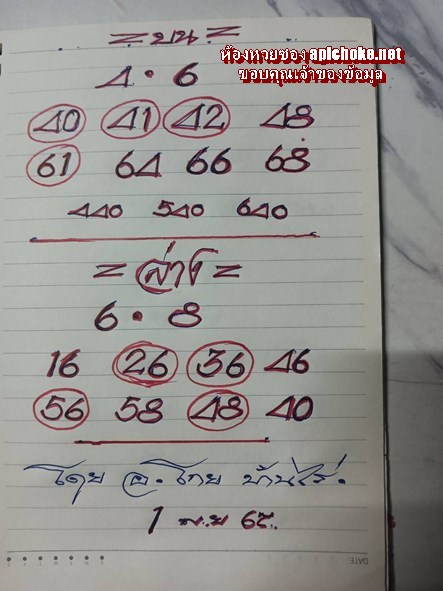 = บน =
ห้องหวยซอง apichoke.net
ขอบคุณเจ้าของข้อมูล
4 · 6
40 41 42 48
61 64 66 68
440 540 640
= ล่าง =
6 · 8
16 26 36 46
56 58 48 40
โดย อ. โกย บ้านไร่.
1 พ.ย 65.
DATE